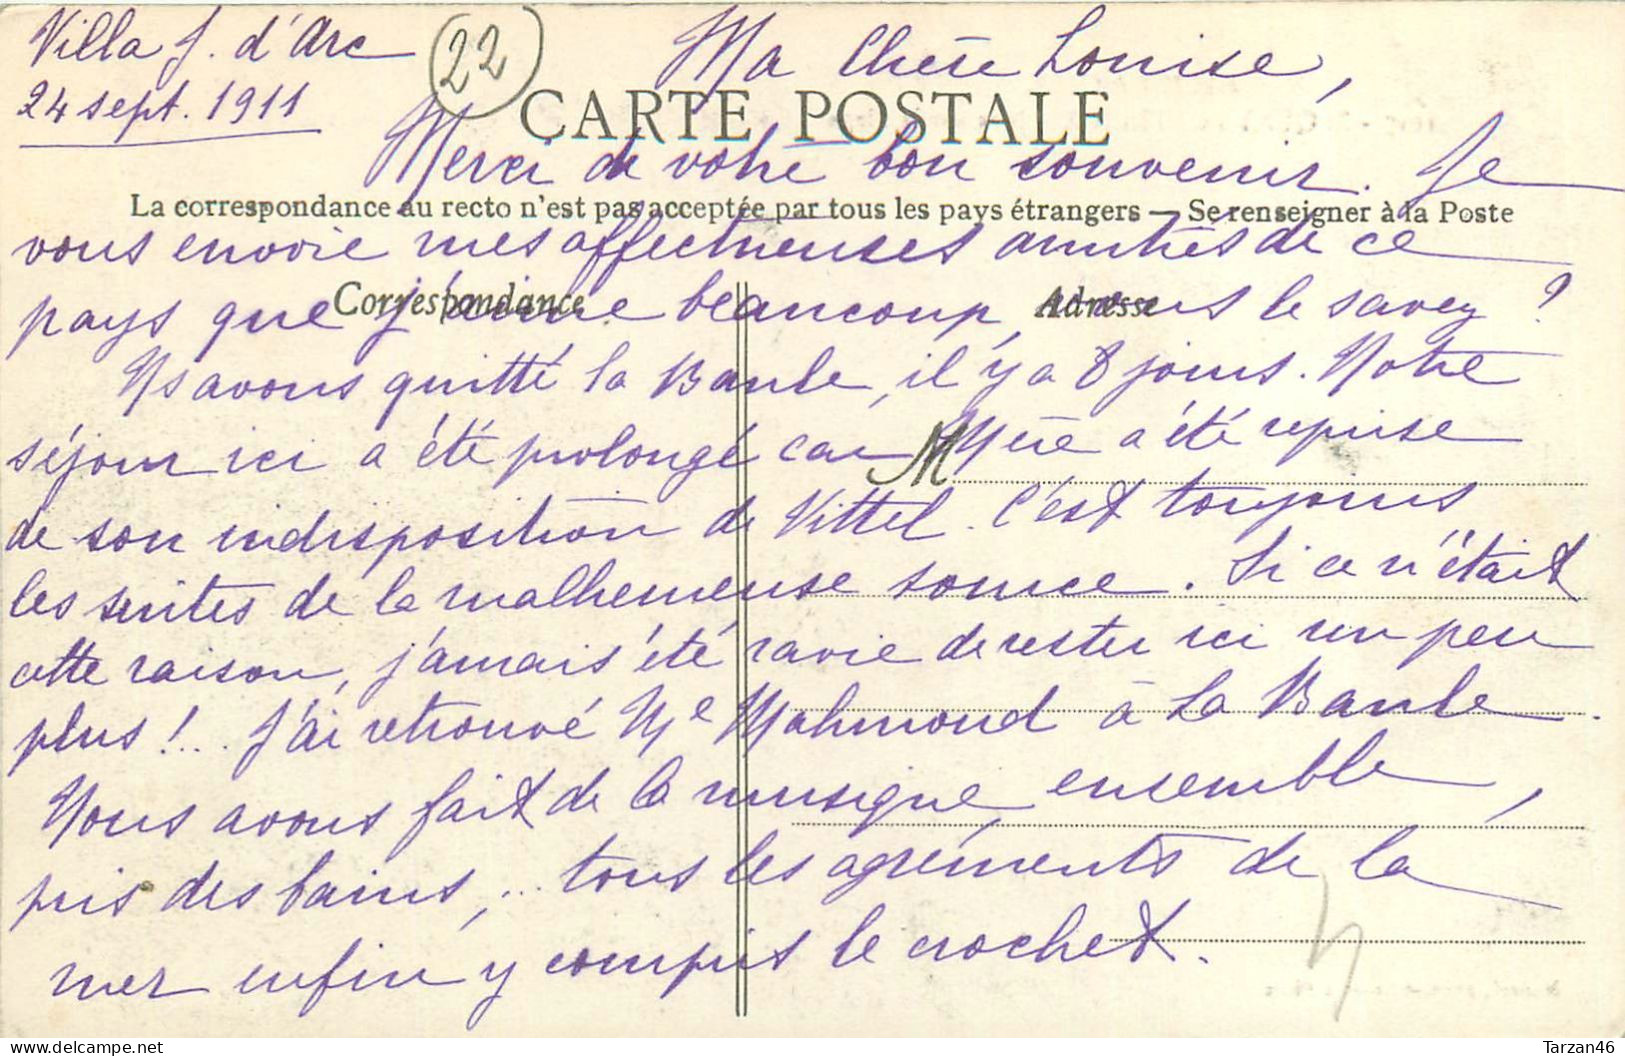 Villa J. d'Arc
24 sept. 1911
22
Ma Chère Louise,
CARTE POSTALE
Merci de votre bon souvenir. Je
La correspondance au recto n'est pas acceptée par tous les pays étrangers — Se renseigner à la Poste
vous envoie mes affectueuses amitiés de ce
Correspondance
Adresse
pays que j'aime beaucoup, vous le savez ?
Ns avons quitté la Baule, il y a 8 jours. Notre
séjour ici a été prolongé car Mère a été reprise
M
de son indisposition de Vittel. C'est toujours
les suites de la malheureuse source. Si ce n'était
cette raison, j'amais été ravie de rester ici un peu
plus !... J'ai retrouvé Me Mahmoud à La Baule.
Nous avons fait de la musique, ensemble,
pris des bains,... tous les agréments de la
mer enfin y compris le crochet.
Tarzan46